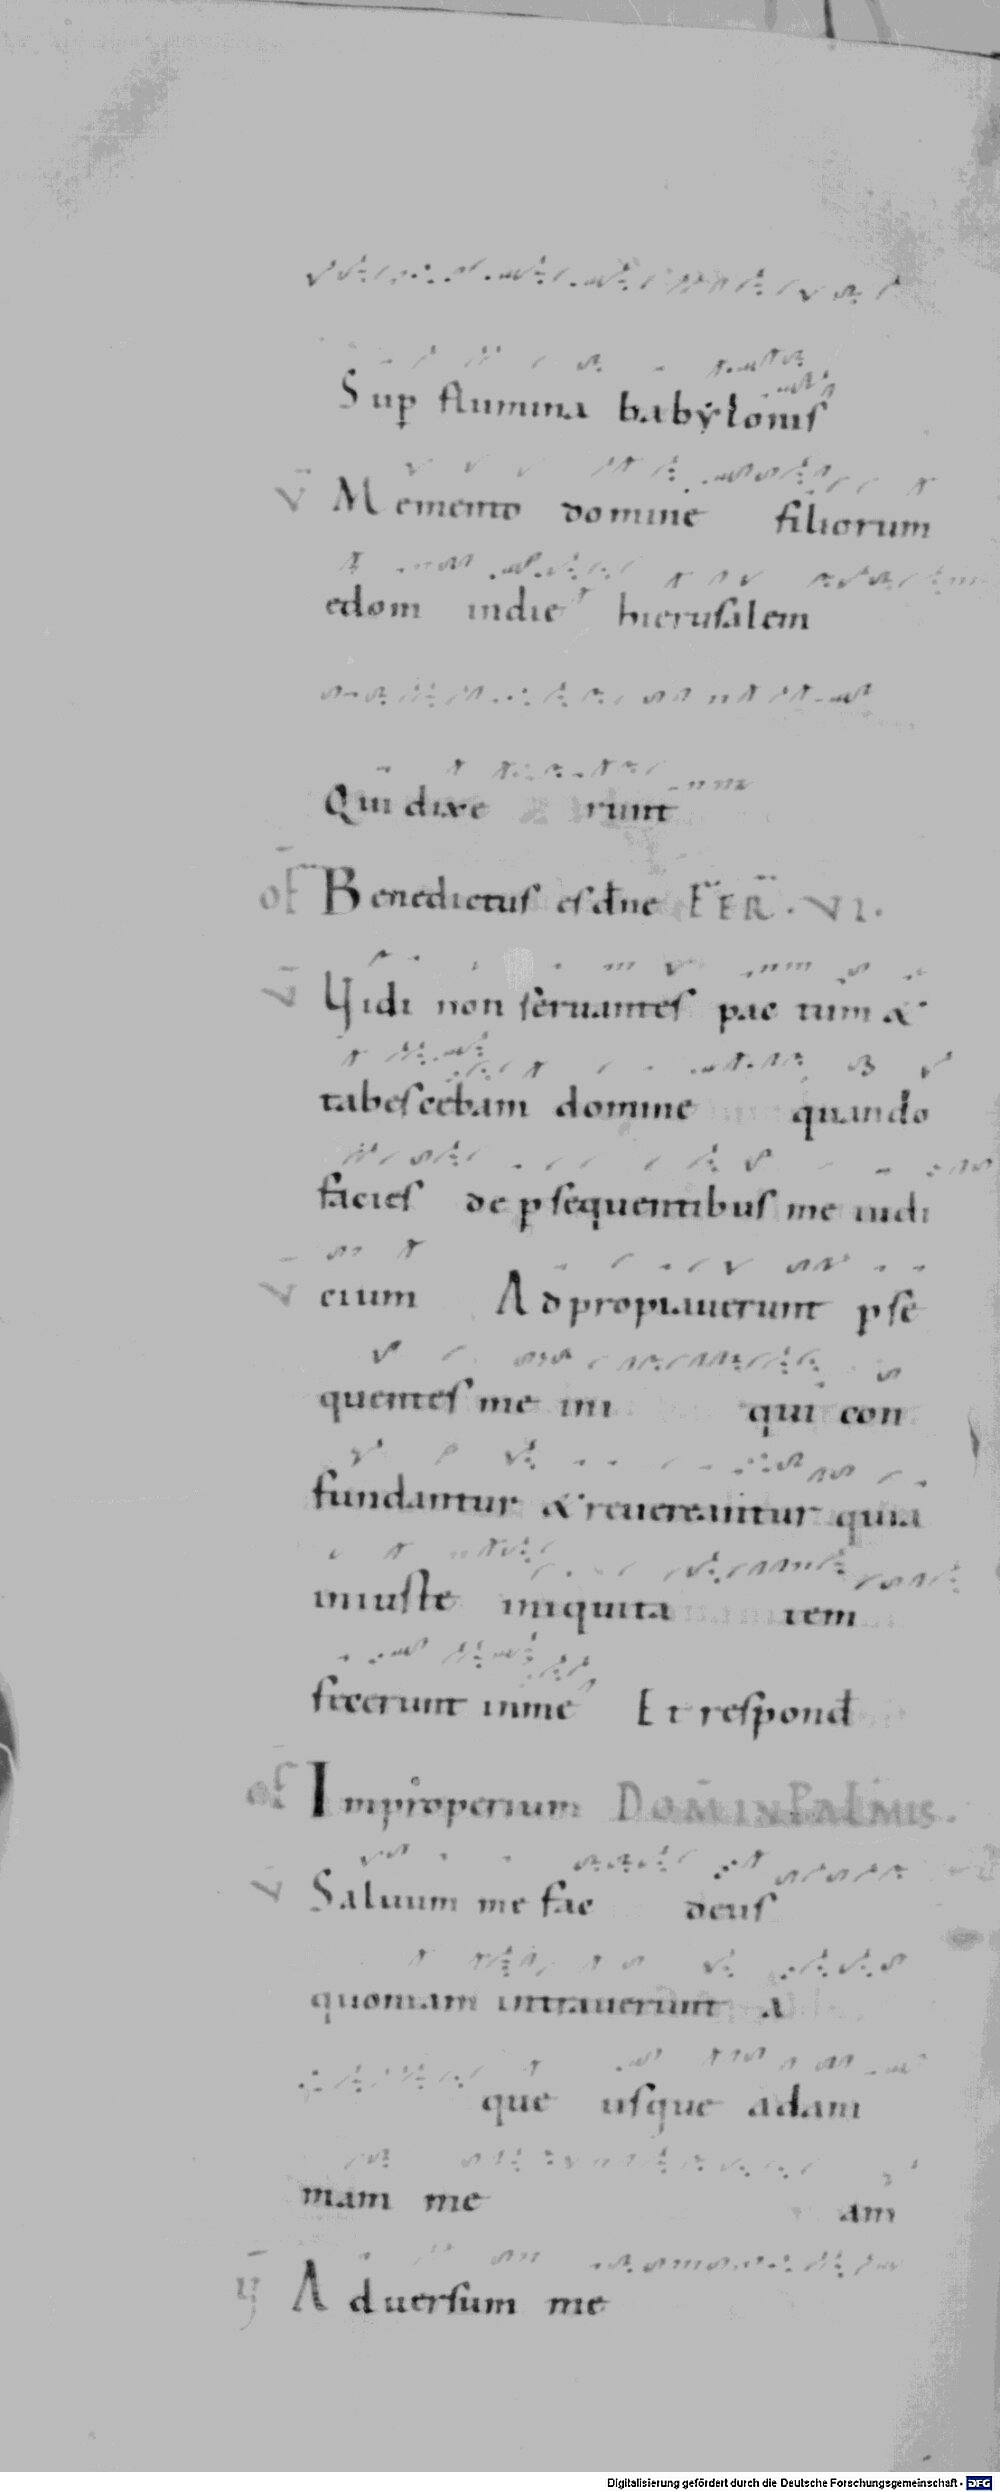 Sup flumina babylonis
V Memento domine filiorum
edom indie hierusalem
Qui dixe runt
of Benedictus es dne FER. VI.
V Vidi non seruantes pac tum &
tabescebam domine quando
facies de psequentibus me iudi
V cium Adpropiauerunt pse
quentes me ini qui con
fundantur & reuereantur quia
iniuste iniquita tem
fecerunt inme Et respond
of Improperium DOM IN PALMIS.
V Saluum me fac deus
quoniam intrauerunt a
que usque adani
mam me am
V Aduersum me
Digitalisierung gefördert durch die Deutsche Forschungsgemeinschaft - DFG